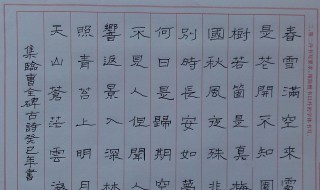 春雪滿空來
是花開不知
樹若箇是真梅
國秋風夜殊非
別時長安如
何日是歸期
不見人但聞人
響返景入深林
照青苔上明月
天山蒼茫雲海
集臨曹全碑古詩癸巳年書